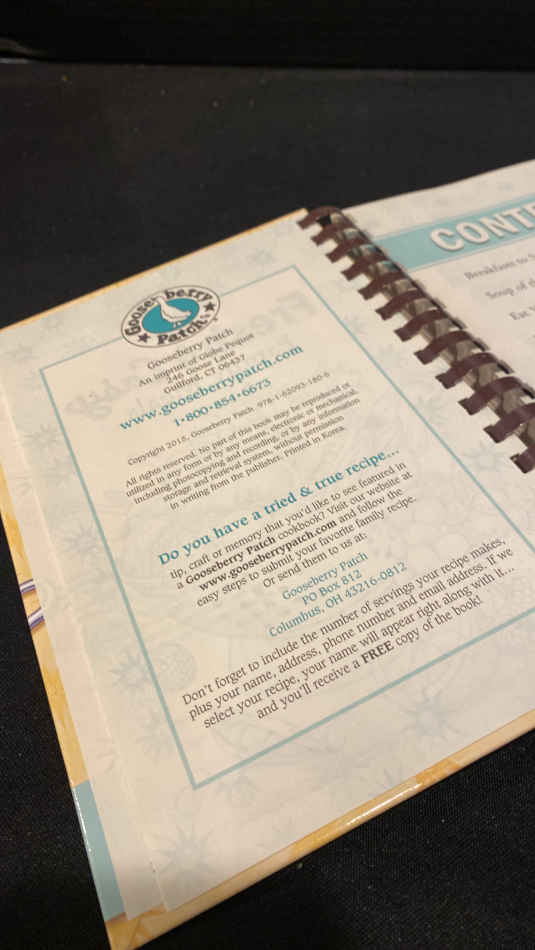 Gooseberry
Patch
Gooseberry Patch
An imprint of Globe Pequot
246 Goose Lane
Guilford, CT 06437
www.gooseberrypatch.com
1•800•854•6673
Copyright 2015, Gooseberry Patch 978-1-62093-180-6
All rights reserved. No part of this book may be reproduced or
utilized in any form or by any means, electronic or mechanical,
including photocopying and recording, or by any information
storage and retrieval system, without permission
in writing from the publisher. Printed in Korea.
Do you have a tried & true recipe...
tip, craft or memory that you'd like to see featured in
a Gooseberry Patch cookbook? Visit our website at
www.gooseberrypatch.com and follow the
easy steps to submit your favorite family recipe.
Or send them to us at:
Gooseberry Patch
PO Box 812
Columbus, OH 43216-0812
Don't forget to include the number of servings your recipe makes,
plus your name, address, phone number and email address. If we
select your recipe, your name will appear right along with it...
and you'll receive a FREE copy of the book!
CONTE
Breakfast to
Soup of
Eat